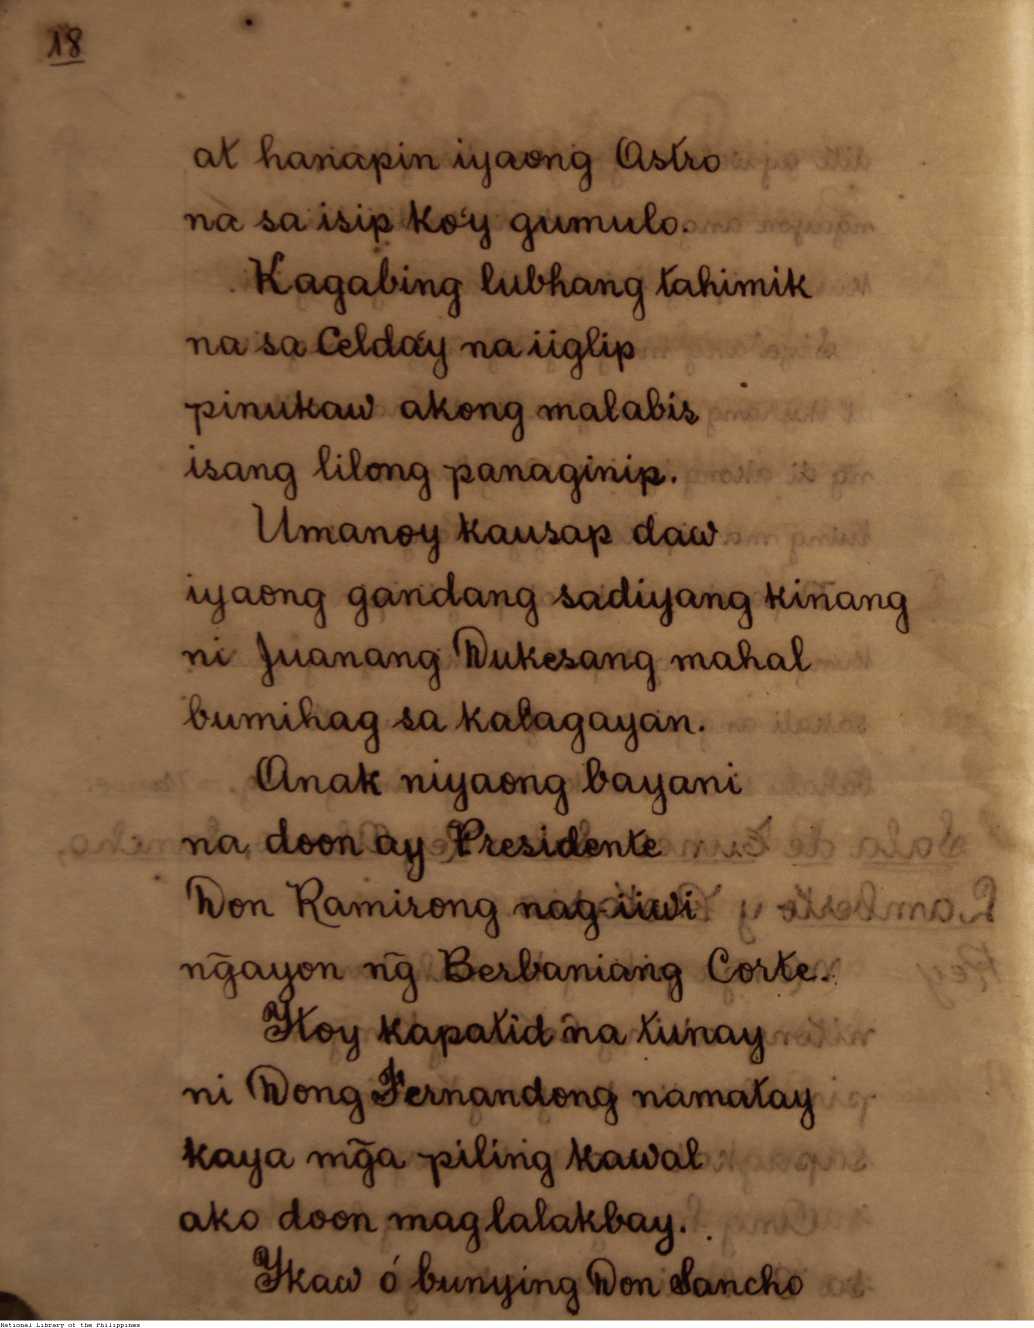 18
at hanapin iyaong Astro
na sa isip ko'y gumulo.
Kagabing lubhang tahimik
na sa Celda'y na iiglip
pinukaw akong malabis
isang lilong panaginip.
Umanoy kausap daw
iyaong gandang sadiyang kinang
ni Juanang Dukesang mahal
bumihag sa kalagayan.
Anak niyaong bayani
na doon ay Presidente
Don Ramirong nag-iiwi
ng̃ayon ng̃ Berbaniang Corte.
Ytoy kapatid na tunay
ni Dong Fernandong namatay
kaya mg̃a piling kawal
ako doon maglalakbay.
Ykaw ó bunying Don Sancho
National Library of the Philippines